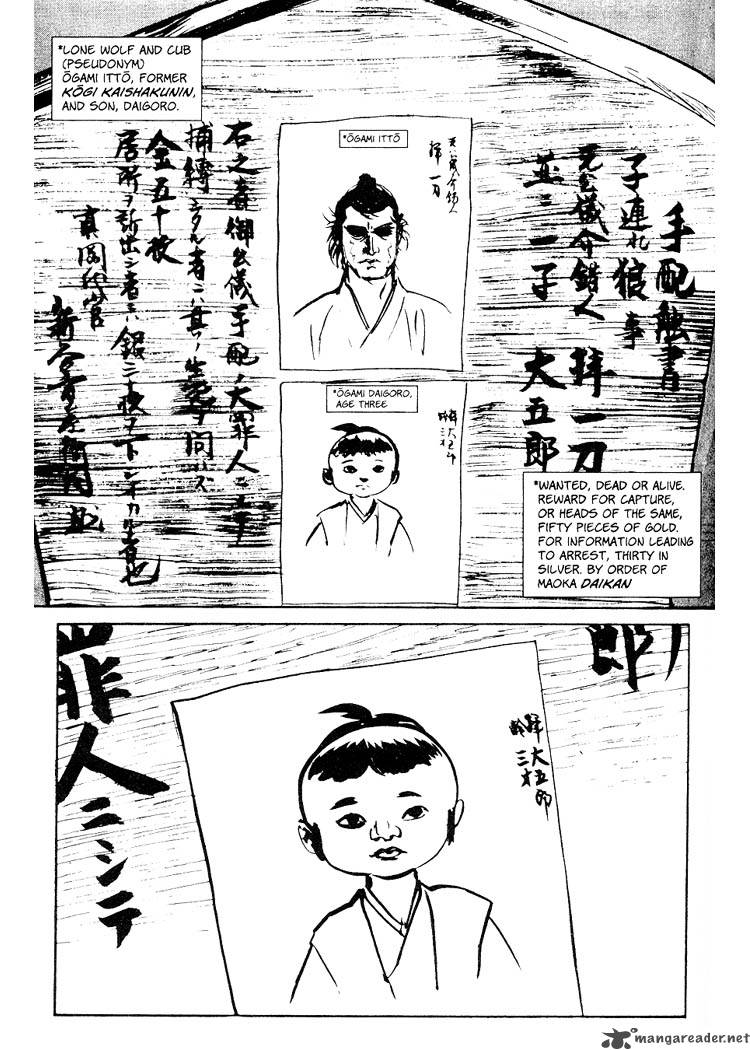 *LONE WOLF AND CUB
(PSEUDONYM)
ŌGAMI ITTŌ, FORMER
KŌGI KAISHAKUNIN,
AND SON, DAIGORO.
手配触書
子連れ狼事
元公儀介錯人 拝一刀
並ニ一子 大五郎
*ŌGAMI ITTŌ
元公儀介錯人
拝一刀
*ŌGAMI DAIGORO,
AGE THREE
拝大五郎
齢三才
右之者御公儀手配ノ大罪人ニシテ
捕縛シタル者ニハ其ノ生死ヲ問ハズ
金五十枚
居所ヲ訴出シ者ニハ銀三十枚ヲ下シオカル者也
真岡代官
*WANTED, DEAD OR ALIVE.
REWARD FOR CAPTURE,
OR HEADS OF THE SAME,
FIFTY PIECES OF GOLD.
FOR INFORMATION LEADING
TO ARREST, THIRTY IN
SILVER. BY ORDER OF
MAOKA DAIKAN
郎
拝大五郎
齢三才
罪人ニシテ
mangareader.net